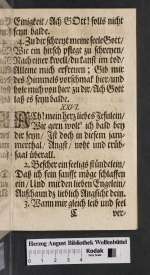 Einigkeit / Ach GOtt! solls nicht
seyn balde.
4. Zu dir schreyt meine seele Gott /
Wie ein hirsch pflegt zu schreyen /
Nach einer kvell / du kanst im tod /
Alleine mich erfreuen; Gib mir
des Himmels vorschmak hier / und
hole mich von hier zu dir / Ach Gott
laß es seyn balde.
XXVI.
ACh! mein hertzliebes Jesulein /
Wie gern wolt' ich bald bey
dir seyn / Ist doch in diesem jam-
merthal / Angst / noht und trüb-
saal überall.
2. Bescher ein seeligs stündelein /
Daß ich sein sanfft möge schlaffen
ein / Und mit den lieben Engelein /
Anschaun dz lieblich Angesicht dein.
3. Wann mir gleich leib und seel
C ver-
Herzog August Bibliothek Wolfenbüttel
Kodak